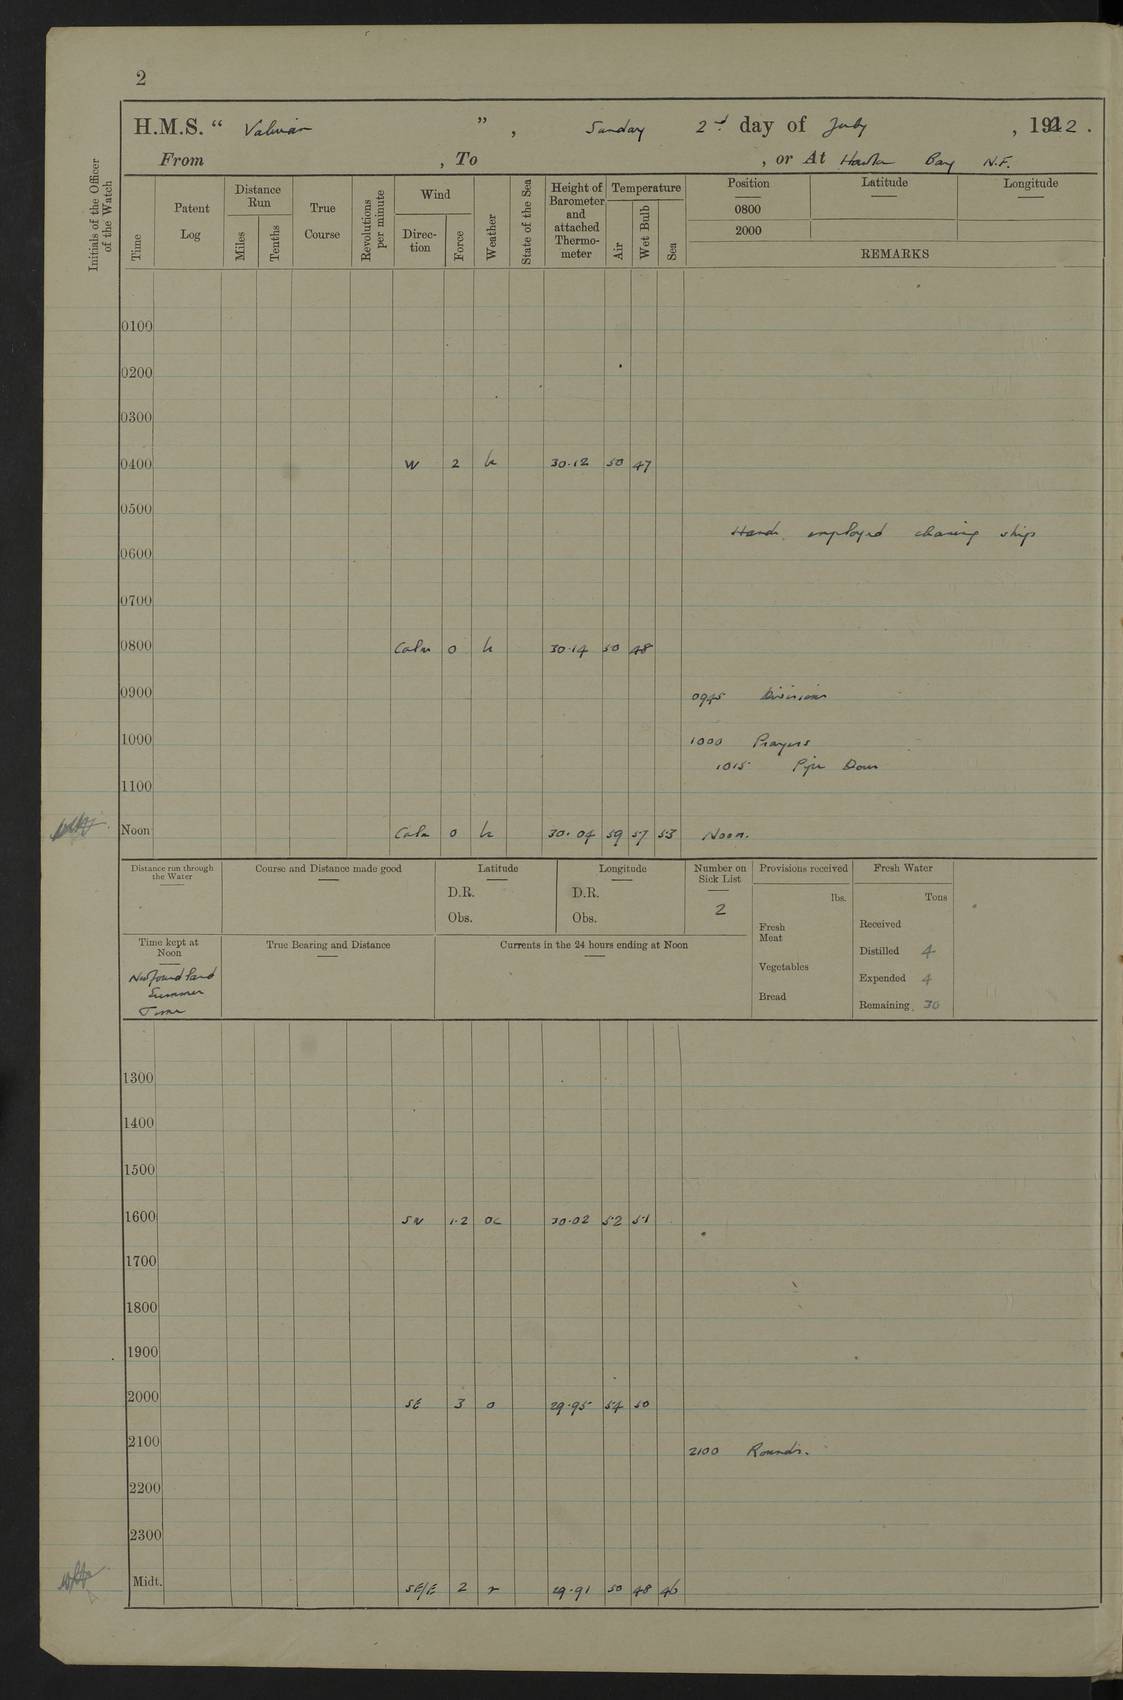 2
H.M.S. “ Valerian ” , Sunday 2nd day of July , 1922 .
From , To , or At Hawke Bay N.F.
Initials of the Officer of the Watch
Time
Patent Log
Distance Run
Miles
Tenths
True Course
Revolutions per minute
Wind
Direc-tion
Force
Weather
State of the Sea
Height of Barometer and attached Thermo-meter
Temperature
Air
Wet Bulb
Sea
Position Latitude Longitude
0800
2000
REMARKS
0100
0200
0300
0400 W 2 b 30.12 50 47
0500
Hands employed cleaning ship
0600
0700
0800 Calm 0 b 30.14 50 48
0900 0945 Divisions
1000 1000 Prayers
1015 Pipe Down
1100
Noon Calm 0 b 30.04 59 57 53 Noon.
Distance run through the Water
Course and Distance made good
Latitude
D.R.
Obs.
Longitude
D.R.
Obs.
Number on Sick List
2
Provisions received
lbs.
Fresh Meat
Vegetables
Bread
Fresh Water
Tons
Received
Distilled 4
Expended 4
Remaining 30
Time kept at Noon
Newfoundland
Summer
Time
True Bearing and Distance
Currents in the 24 hours ending at Noon
1300
1400
1500
1600 SW 1.2 oc 30.02 52 51
1700
1800
1900
2000 SE 3 o 29.95 54 50
2100 2100 Rounds.
2200
2300
Midt. SE/E 2 r 29.91 50 48 46